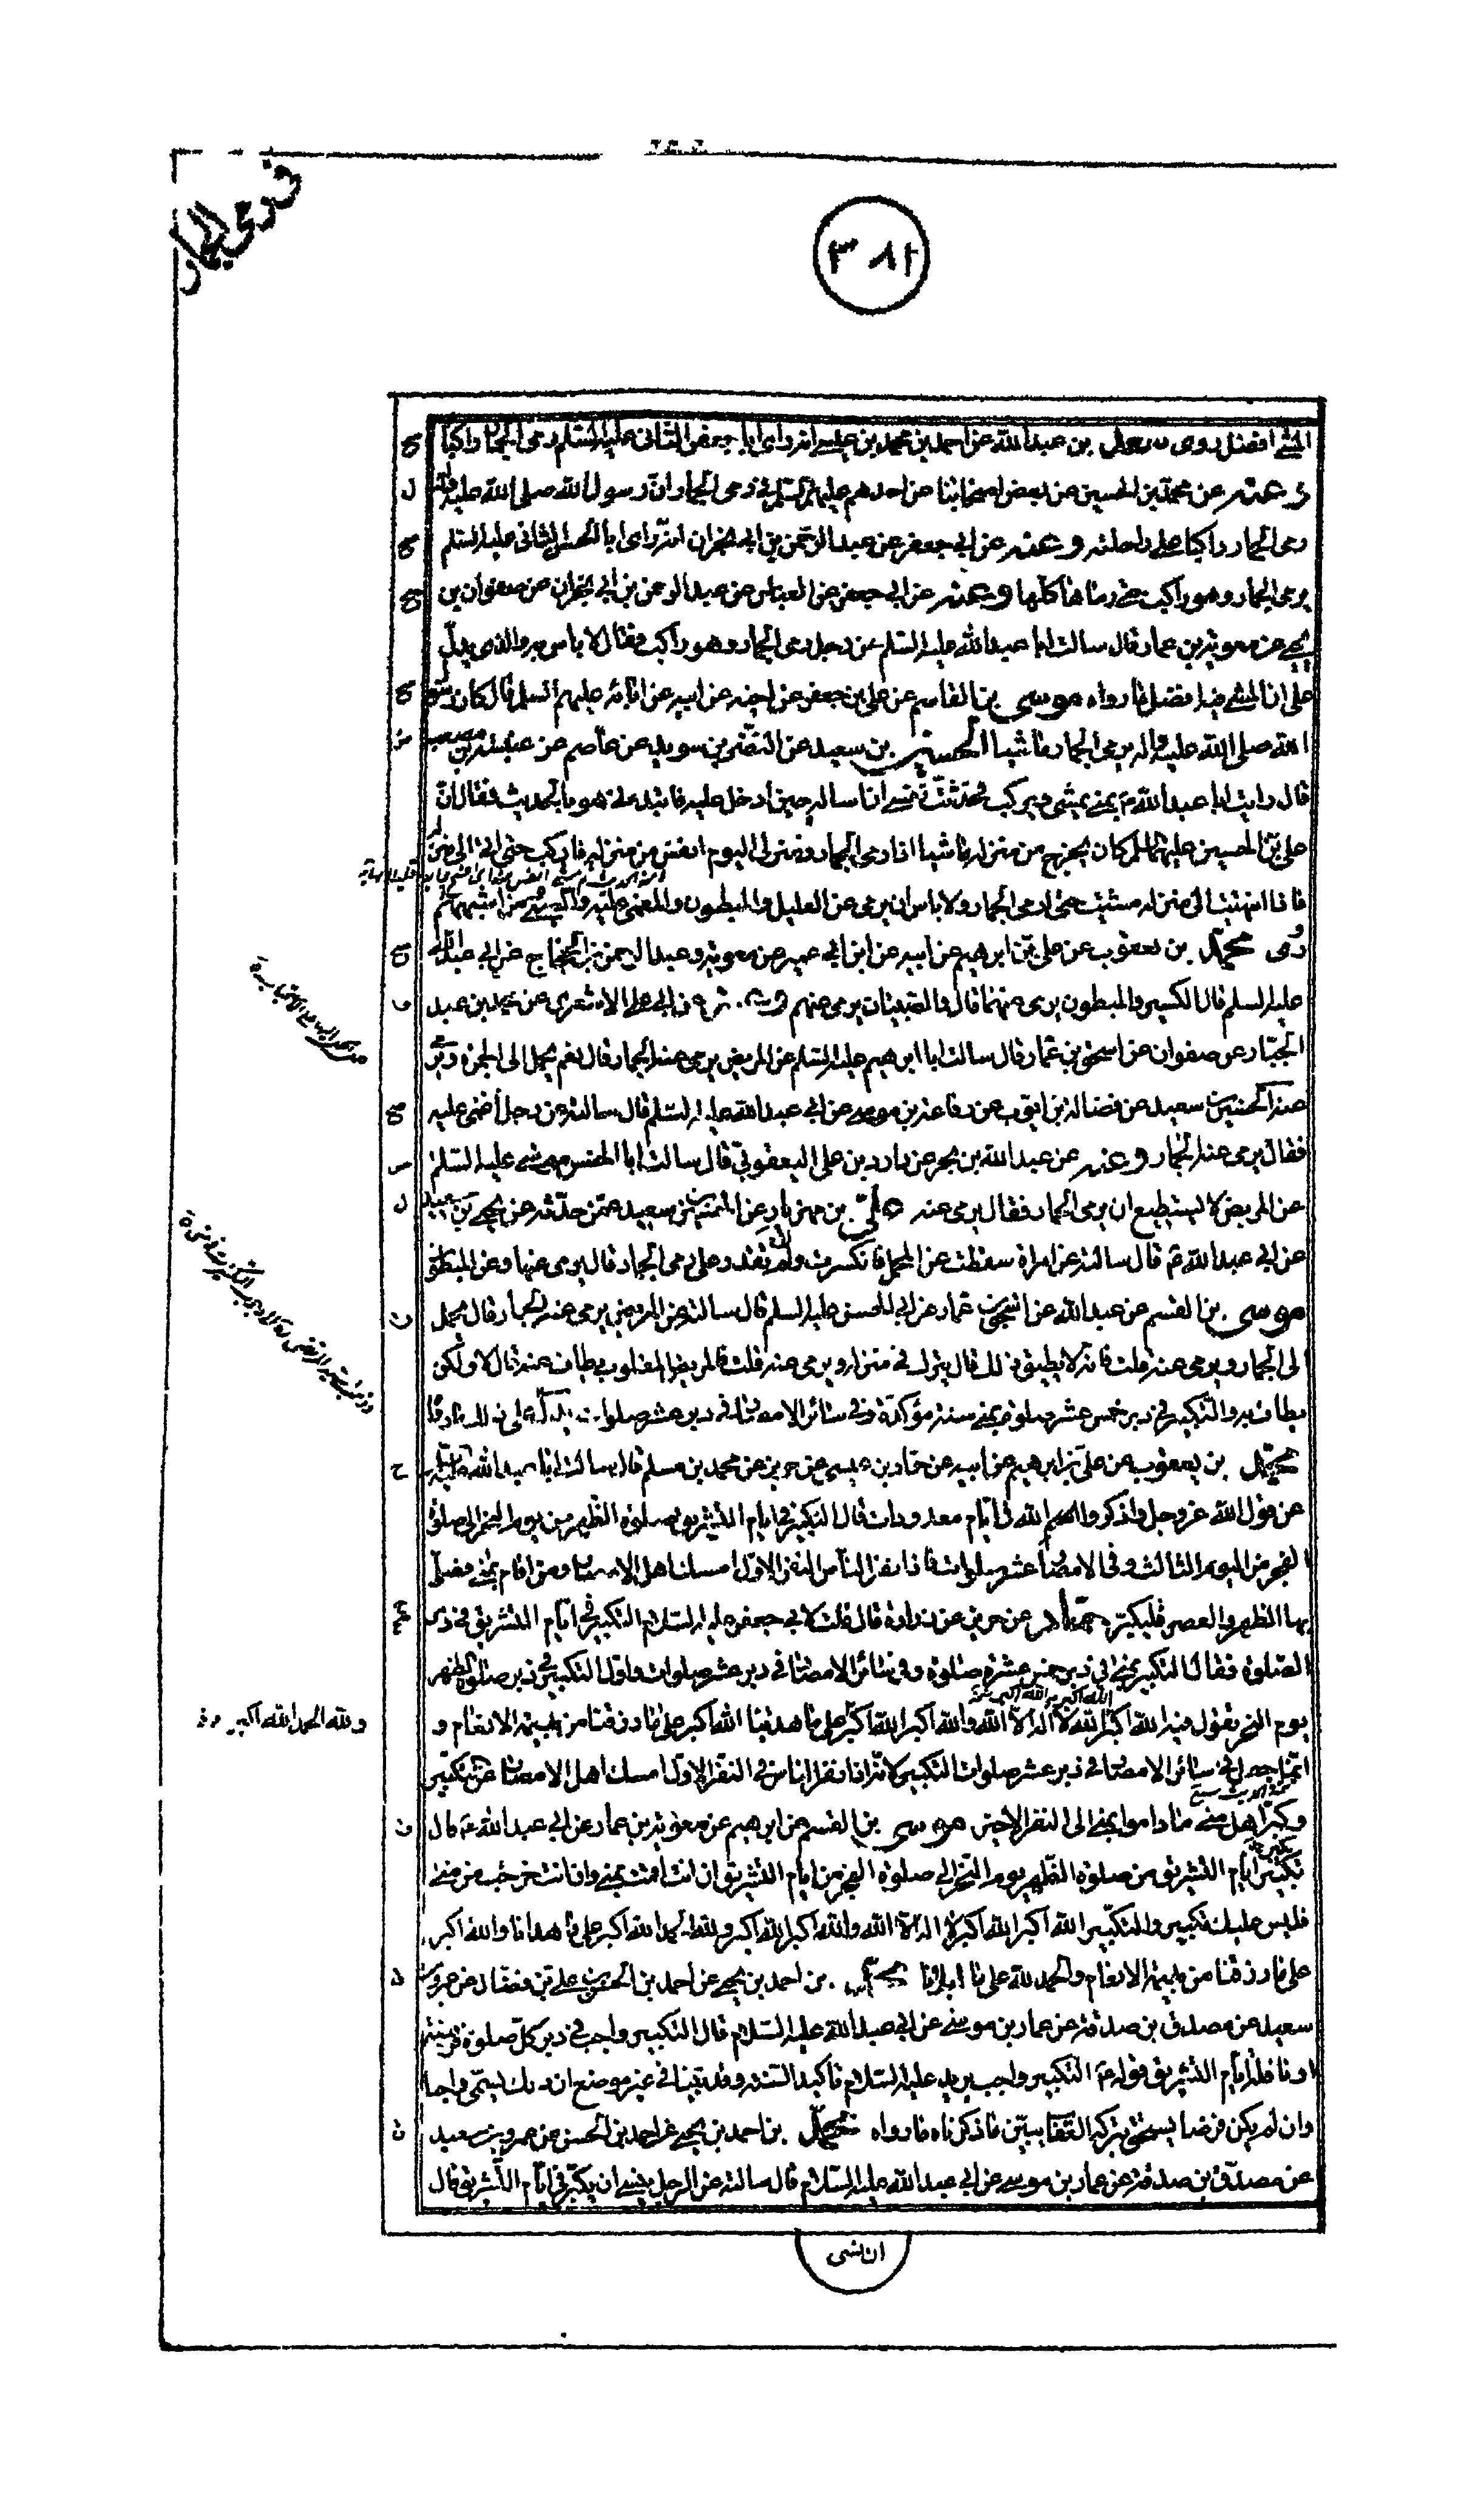 في رمي الجمار
٣٨١
المشي افضل روى سعد بن عبدالله عن احمد بن محمد بن عيسى انه راى ابا جعفر الثاني عليه السلم رمى الجمار راكبا
وعنه عن محمد بن الحسين عن بعض اصحابنا عن احدهم عليهم السلم في رمى الجمار وان رسول الله صلى الله عليه واله
رمى الجمار راكبا على راحلته وعنه عن ابي جعفر عن عبد الرحمن بن ابي نجران انه راى ابا الحسن الثاني عليه السلم
يرمى الجمار وهو راكب حتى رماها كلها وعنه عن ابي جعفر عن العباس عن عبد الرحمن بن ابي نجران عن صفوان بن
يحيى عن معوية بن عمار قال سالت ابا عبدالله عليه السلم عن رجل رمى الجمار وهو راكب فقال لا باس به والذى يدل
على ان المشى فيه افضل ما رواه موسى بن القاسم عن على بن جعفر عن اخيه عن ابيه عن ابائه عليهم السلم قال كان رسول
الله صلى الله عليه واله يرمى الجمار ماشيا الحسين بن سعيد عن النضر بن سويد عن عاصم عن عنبسة بن مصعب
قال رايت ابا عبدالله ع بمنى يمشى ويركب فحدثت نفسى ان اساله حين ادخل عليه فابتدءنى هو بالحديث فقال ان
على بن الحسين عليهما السلم كان يخرج من منزله ماشيا اذا رمى الجمار ومنزلى اليوم انفس من منزله فاركب حتى اتى الى منزله
فاذا انتهيت الى منزله مشيت حتى ارمى الجمار ولا باس ان يرمى عن العليل والمبطون والمغمى عليه والصبي ومن اشبههم
روى محمد بن يعقوب عن على بن ابرهيم عن ابيه عن ابن ابي عمير عن معوية وعبد الرحمن بن الحجاج عن ابي عبدالله
عليه السلم قال الكسير والمبطون يرمى عنهما قال والصبيان يرمى عنهم ابى على الاشعرى عن محمد بن عبد
الجبار عن صفوان عن اسحق بن عمار قال سالت ابا ابرهيم عليه السلم عن المريض يرمى عنه الجمار قال نعم يحمل الى الجمرة ويرمى
عنه الحسين بن سعيد عن فضالة بن ايوب عن رفاعة بن موسى عن ابي عبدالله عليه السلم قال سالته عن رجل اغمى عليه
فقال يرمى عنه الجمار وعنه عن عبدالله بن بحر عن داود بن على اليعقوبي قال سالت ابا الحسن موسى عليه السلم
عن المريض لا يستطيع ان يرمى الجمار فقال يرمى عنه على بن مهزيار عن الحسين بن سعيد عمن حدثه عن يحيى بن سعيد
عن ابي عبدالله ع قال سالته عن امراة سقطت عن المحمل فانكسرت ولم تقدر على رمى الجمار قال يرمى عنها وعن المبطون
موسى بن القسم عن عبدالله عن اسحق بن عمار عن ابي الحسن عليه السلم قال سالته عن المريض يرمى عنه الجمار قال يحمل
الى الجمار ويرمى عنه قلت فانه لا يطيق ذلك قال يترك في منزله ويرمى عنه قلت فالمريض المغلوب يطاف عنه قال لا ولكن
يطاف به والتكبير في دبر خمس عشر صلوة بمنى سنة مؤكدة وفي سائر الامصار في دبر عشر صلوات يدل على ذلك ما رواه
محمد بن يعقوب عن على بن ابرهيم عن ابيه عن حماد بن عيسى عن حريز عن محمد بن مسلم قال سالت ابا عبدالله عليه السلم
عن قول الله عز وجل واذكروا الله في ايام معدودات قال التكبير في ايام التشريق صلوة الظهر من يوم النحر الى صلوة
الفجر من اليوم الثالث وفي الامصار عشر صلوات فاذا نفر الناس النفر الاول امسك اهل الامصار ومن اقام بمنى فصلى
بها الظهر والعصر فليكبر حماد عن حريز عن زرارة قال قلت لابي جعفر عليه السلام التكبير في ايام التشريق في دبر
الصلوة فقال التكبير بمنى في دبر خمس عشرة صلوة وفي سائر الامصار في دبر عشر صلوات واول التكبير في دبر صلوة الظهر
يوم النحر يقول فيه الله اكبر الله اكبر لا اله الا الله والله اكبر الله اكبر على ما هدينا الله اكبر على ما رزقنا من بهيمة الانعام و
ولله الحمد الله اكبر
انما جعل في سائر الامصار في دبر عشر صلوات التكبير لانه اذا نفر الناس في النفر الاول امسك اهل الامصار عن التكبير
وكبر اهل منى ما داموا بمنى الى النفر الاخير موسى بن القسم عن ابرهيم عن معوية بن عمار عن ابي عبدالله ع قال
تكبير ايام التشريق من صلوة الظهر يوم النحر الى صلوة الفجر من ايام التشريق ان انت اقمت بمنى وان انت خرجت من منى
فليس عليك تكبير والتكبير الله اكبر الله اكبر لا اله الا الله والله اكبر الله اكبر ولله الحمد الله اكبر على ما هدانا والله اكبر
على ما رزقنا من بهيمة الانعام والحمد لله على ما ابلانا محمد بن احمد بن يحيى عن احمد بن الحسن بن على بن فضال عن عمرو بن
سعيد عن مصدق بن صدقة عن عمار بن موسى عن ابي عبدالله عليه السلام قال التكبير واجب في دبر كل صلوة فريضة
او نافلة ايام التشريق قوله ع التكبير واجب يريد عليه السلام تاكيد السنة وقد بينا في غير موضع ان ذلك يسمى واجبا
وان لم يكن فرضا يستحق بتركه العقاب يبين ما ذكرناه ما رواه محمد بن احمد بن يحيى عن احمد بن الحسن عن عمرو بن سعيد
عن مصدق بن صدقة عن عمار بن موسى عن ابي عبدالله عليه السلام قال سالته عن الرجل ينسى ان يكبر في ايام التشريق قال
ان نسى